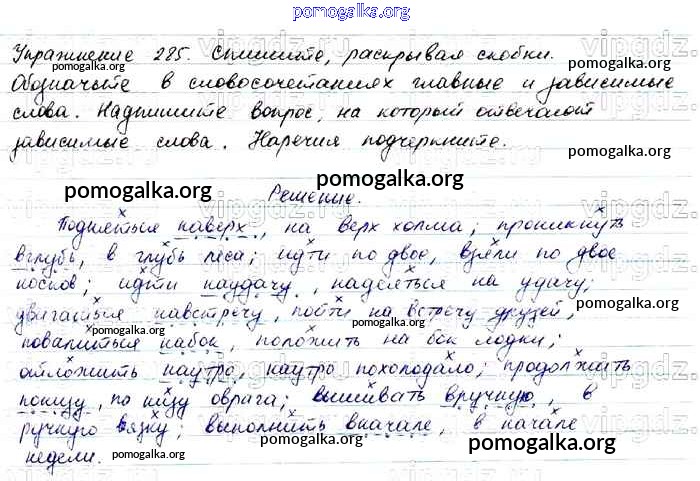 pomogalka.org
Упражнение 285. Спишите, раскрывая скобки.
Обозначьте в словосочетаниях главные и зависимые
слова. Надпишите вопрос, на который отвечают
зависимые слова. Наречия подчеркните.
pomogalka.org pomogalka.org
Решение.
Подняться наверх, на верх холма; проникнуть
вглубь, в глубь леса; идти по двое, взяли по двое
носков; идти наудачу, надеяться на удачу;
pomogalka.org
двигаться навстречу, пойти на встречу друзей;
pomogalka.org pomogalka.org
повалиться набок, положить на бок лодки;
отложить наутро, наутро похолодало; продолжить
понизу, по низу оврага; вышивать вручную, в
ручную вязку; выполнить вначале, в начале
pomogalka.org pomogalka.org
недели.